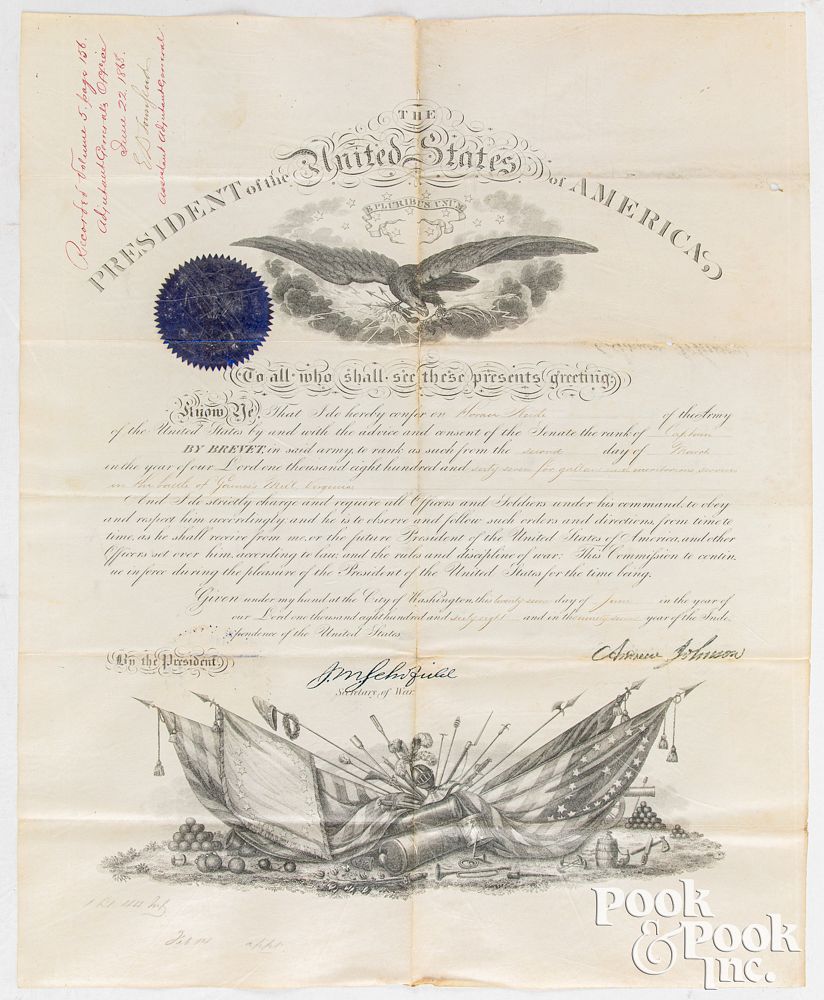 Recorded Volume 5. page 156.
Adjutant General's Office
June 22. 1868.
E D Townsend
Assistant Adjutant General
THE
PRESIDENT of the United States of AMERICA,
E PLURIBUS UNUM
To all who shall see these presents greeting:
Know Ye, That I do hereby confer on Horace of the Army
of the United States by and with the advice and consent of the Senate the rank of Captain
BY BREVET, in said army, to rank as such from the second day of March
in the year of our Lord one thousand eight hundred and sixty seven for gallant and meritorious services
in the battle of Gaines's Mill Virginia
And I do strictly charge and require all Officers and Soldiers under his command, to obey
and respect him accordingly and he is to observe and follow such orders and directions, from time to
time, as he shall receive from me, or the future President of the United States of America, and other
Officers set over him, according to law, and the rules and discipline of war. This Commission to contin-
ue in force during the pleasure of the President of the United States for the time being.
Given under my hand at the City of Washington, this day of June in the year of
our Lord one thousand eight hundred and sixty eight and in the ninety second year of the Inde-
pendence of the United States
By the President,
Andrew Johnson
J M Schofield
Secretary of War
POOK
& POOK
INC.